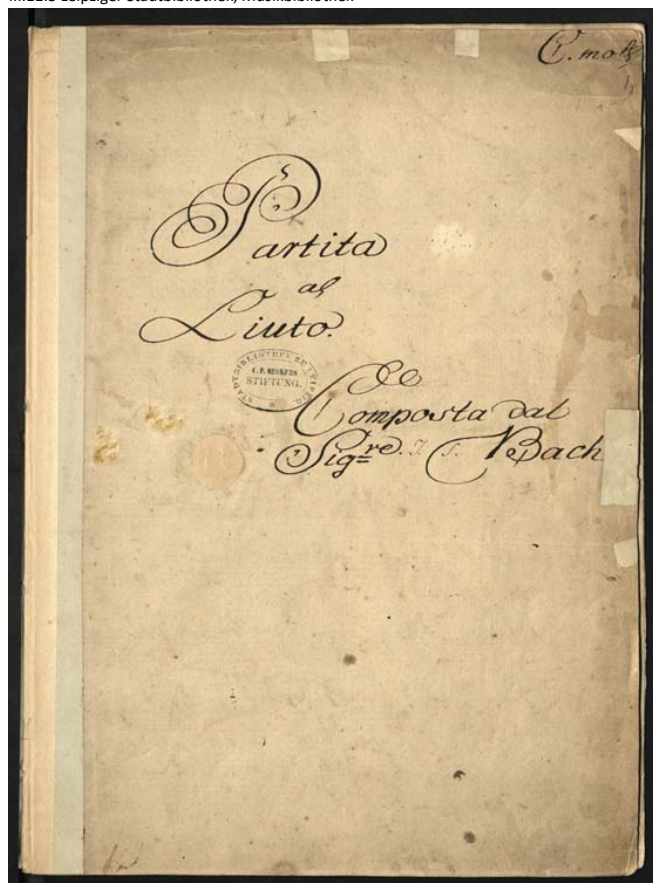 III.11.3 Leipziger Stadtbibliothek, Musikbibliothek
C. moll
Partita
al
Liuto.
STADTBIBLIOTHEK ZU LEIPZIG
C. F. BECKERS
STIFTUNG.
Composta dal
Sigre. J. S. Bach